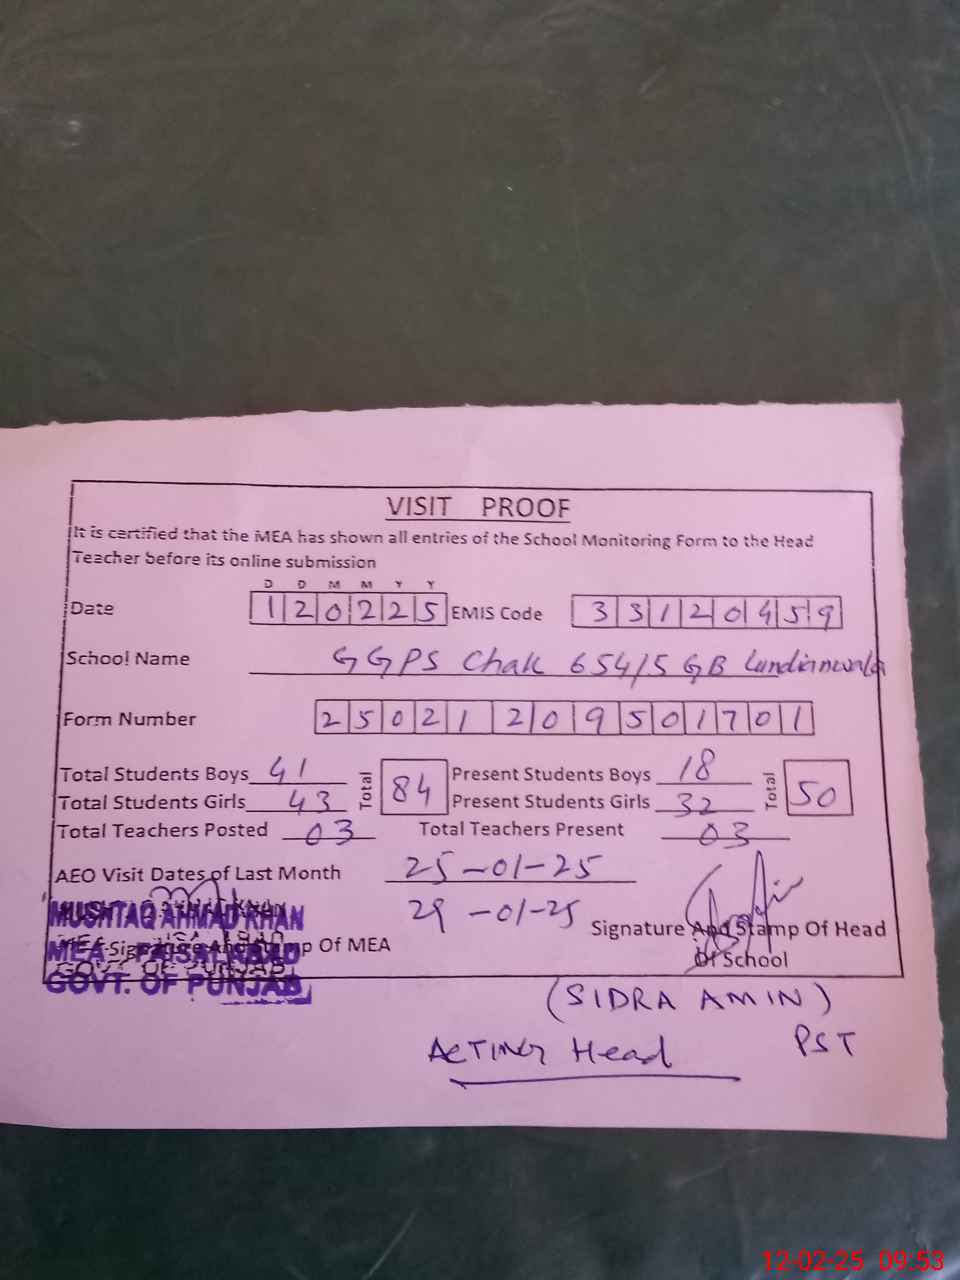 VISIT PROOF
It is certified that the MEA has shown all entries of the School Monitoring Form to the Head
Teacher before its online submission
D D M M Y Y
Date 120225 EMIS Code 33120459
School Name GGPS Chak 654/5 GB Lundianwala
Form Number 25021209501701
Total Students Boys 41 Total 84 Present Students Boys 18 Total 50
Total Students Girls 43 Present Students Girls 32
Total Teachers Posted 03 Total Teachers Present 03
AEO Visit Dates of Last Month 25-01-25
29-01-25
MUSHTAQ AHMAD KHAN
MEA FAISALABAD
GOVT. OF PUNJAB
MEA Signature And Stamp Of MEA
Signature And Stamp Of Head
Of School
(SIDRA AMIN)
PST
Acting Head
12-02-25 09:53